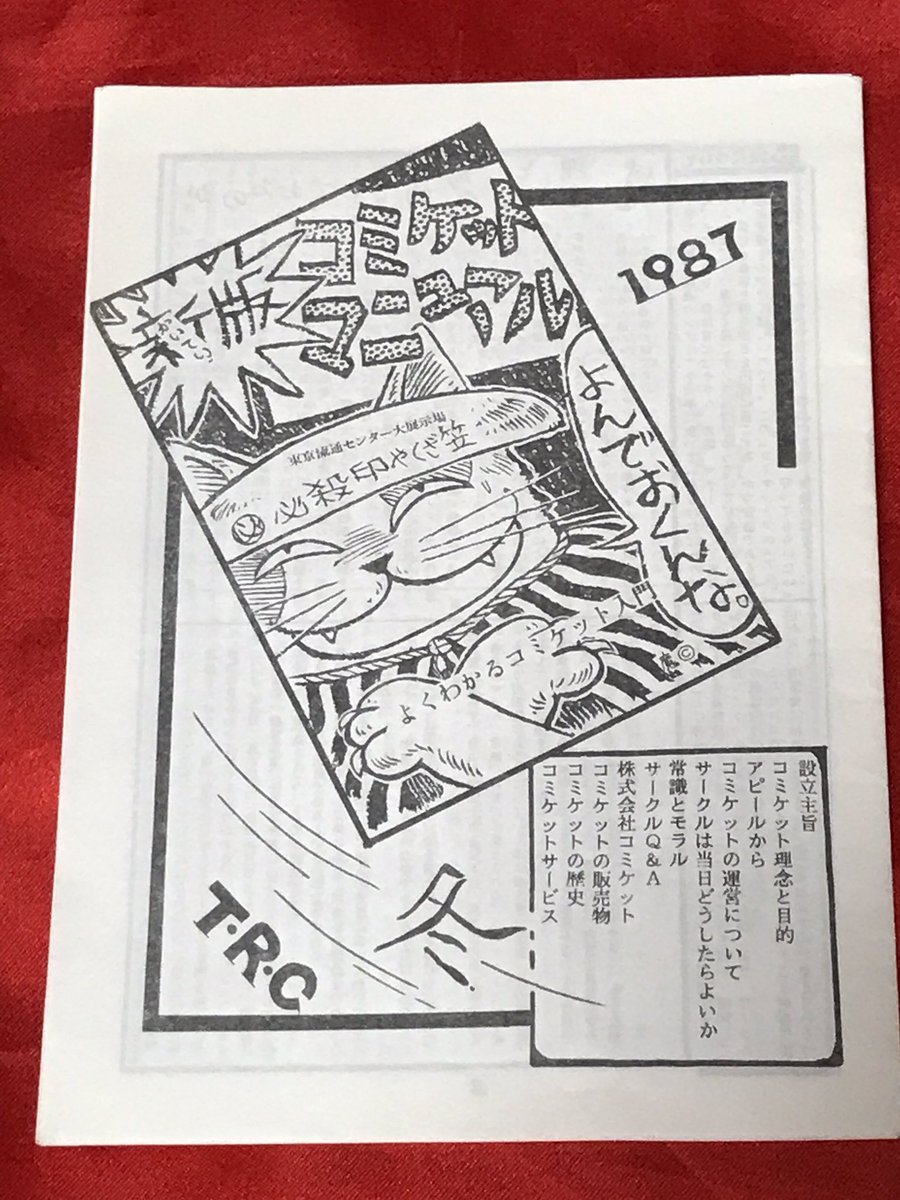 コミケット
マニュアル
かいてい
1987
よんでおくんな。
東京流通センター大展示場
必殺印やくざ笠
よくわかるコミケット入門
©
設立主旨
コミケット理念と目的
アピールから
コミケットの運営について
サークルは当日どうしたらよいか
常識とモラル
サークルQ&A
株式会社コミケット
コミケットの販売物
コミケットの歴史
コミケットサービス
冬
T・R・C